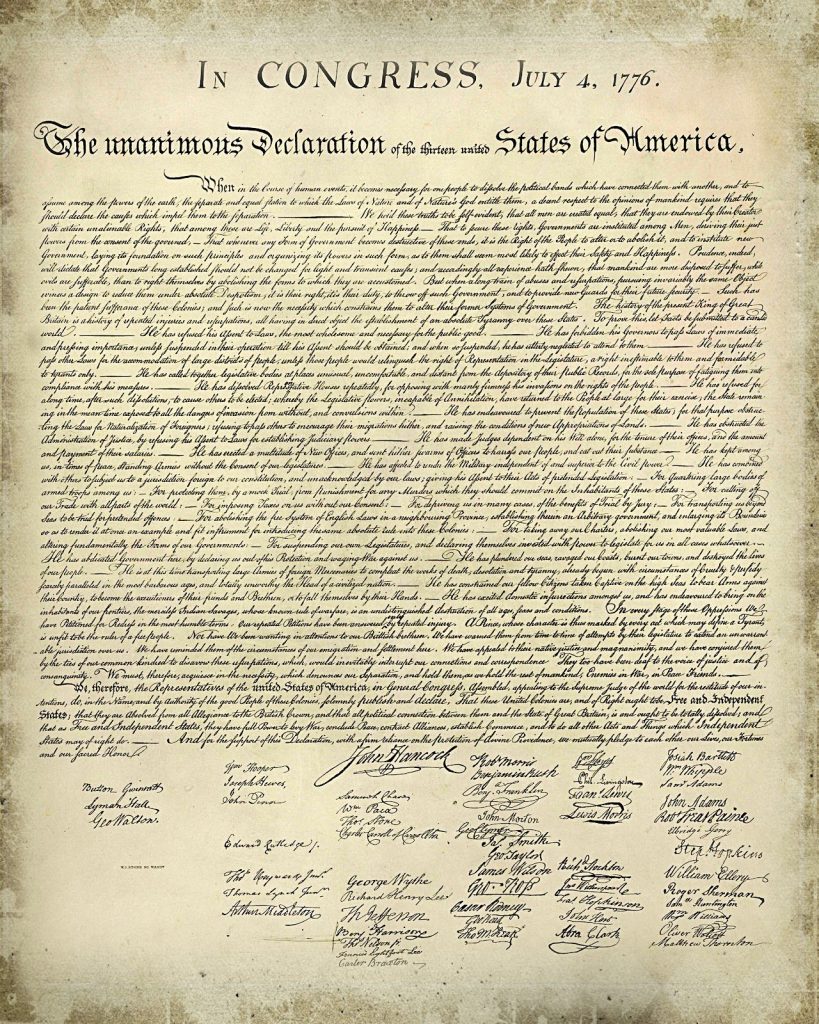 IN CONGRESS, JULY 4, 1776.
The unanimous Declaration of the thirteen united States of America,
When in the Course of human events, it becomes necessary for one people to dissolve the political bands which have connected them with another, and to
assume among the powers of the earth, the separate and equal station to which the Laws of Nature and of Nature's God entitle them, a decent respect to the opinions of mankind requires that they
should declare the causes which impel them to the separation. We hold these truths to be self-evident, that all men are created equal, that they are endowed by their Creator
with certain unalienable Rights, that among these are Life, Liberty and the pursuit of Happiness.— That to secure these rights, Governments are instituted among Men, deriving their just
powers from the consent of the governed,— That whenever any Form of Government becomes destructive of these ends, it is the Right of the People to alter or to abolish it, and to institute new
Government, laying its foundation on such principles and organizing its powers in such form, as to them shall seem most likely to effect their Safety and Happiness. Prudence, indeed,
will dictate that Governments long established should not be changed for light and transient causes; and accordingly all experience hath shewn, that mankind are more disposed to suffer, while
evils are sufferable, than to right themselves by abolishing the forms to which they are accustomed. But when a long train of abuses and usurpations, pursuing invariably the same Object
evinces a design to reduce them under absolute Despotism, it is their right, it is their duty, to throw off such Government, and to provide new Guards for their future security.— Such has
been the patient sufferance of these Colonies; and such is now the necessity which constrains them to alter their former Systems of Government. The history of the present King of Great
Britain is a history of repeated injuries and usurpations, all having in direct object the establishment of an absolute Tyranny over these States. To prove this, let Facts be submitted to a candid
world. He has refused his Assent to Laws, the most wholesome and necessary for the public good. He has forbidden his Governors to pass Laws of immediate
and pressing importance, unless suspended in their operation till his Assent should be obtained; and when so suspended, he has utterly neglected to attend to them. He has refused to
pass other Laws for the accommodation of large districts of people, unless those people would relinquish the right of Representation in the Legislature, a right inestimable to them and formidable
to tyrants only. He has called together legislative bodies at places unusual, uncomfortable, and distant from the depository of their public Records, for the sole purpose of fatiguing them into
compliance with his measures. He has dissolved Representative Houses repeatedly, for opposing with manly firmness his invasions on the rights of the people. He has refused for
a long time, after such dissolutions, to cause others to be elected; whereby the Legislative powers, incapable of Annihilation, have returned to the People at large for their exercise; the State remain-
ing in the mean time exposed to all the dangers of invasion from without, and convulsions within. He has endeavoured to prevent the population of these States; for that purpose obstruc-
ting the Laws for Naturalization of Foreigners; refusing to pass others to encourage their migrations hither, and raising the conditions of new Appropriations of Lands. He has obstructed the
Administration of Justice, by refusing his Assent to Laws for establishing Judiciary powers. He has made Judges dependent on his Will alone, for the tenure of their offices, and the amount
and payment of their salaries. He has erected a multitude of New Offices, and sent hither swarms of Officers to harrass our people, and eat out their substance. He has kept among
us, in times of peace, Standing Armies without the Consent of our legislatures. He has affected to render the Military independent of and superior to the Civil power. He has combined
with others to subject us to a jurisdiction foreign to our constitution, and unacknowledged by our laws; giving his Assent to their Acts of pretended Legislation:— For Quartering large bodies of
armed troops among us:— For protecting them, by a mock Trial, from punishment for any Murders which they should commit on the Inhabitants of these States:— For cutting off
our Trade with all parts of the world:— For imposing Taxes on us without our Consent:— For depriving us in many cases, of the benefits of Trial by Jury:— For transporting us beyond
Seas to be tried for pretended offences:— For abolishing the free System of English Laws in a neighbouring Province, establishing therein an Arbitrary government, and enlarging its Boundaries
so as to render it at once an example and fit instrument for introducing the same absolute rule into these Colonies:— For taking away our Charters, abolishing our most valuable Laws, and
altering fundamentally the Forms of our Governments:— For suspending our own Legislatures, and declaring themselves invested with power to legislate for us in all cases whatsoever.—
He has abdicated Government here, by declaring us out of his Protection and waging War against us. He has plundered our seas, ravaged our Coasts, burnt our towns, and destroyed the lives
of our people. He is at this time transporting large Armies of foreign Mercenaries to compleat the works of death, desolation and tyranny, already begun with circumstances of Cruelty & perfidy
scarcely paralleled in the most barbarous ages, and totally unworthy the Head of a civilized nation. He has constrained our fellow Citizens taken Captive on the high Seas to bear Arms against
their Country, to become the executioners of their friends and Brethren, or to fall themselves by their Hands. He has excited domestic insurrections amongst us, and has endeavoured to bring on the
inhabitants of our frontiers, the merciless Indian Savages, whose known rule of warfare, is an undistinguished destruction of all ages, sexes and conditions. In every stage of these Oppressions We
have Petitioned for Redress in the most humble terms: Our repeated Petitions have been answered only by repeated injury. A Prince, whose character is thus marked by every act which may define a Tyrant,
is unfit to be the ruler of a free people. Nor have We been wanting in attentions to our Brittish brethren. We have warned them from time to time of attempts by their legislature to extend an unwarrant-
able jurisdiction over us. We have reminded them of the circumstances of our emigration and settlement here. We have appealed to their native justice and magnanimity, and we have conjured them
by the ties of our common kindred to disavow these usurpations, which, would inevitably interrupt our connections and correspondence. They too have been deaf to the voice of justice and of
consanguinity. We must, therefore, acquiesce in the necessity, which denounces our Separation, and hold them, as we hold the rest of mankind, Enemies in War, in Peace Friends.
We, therefore, the Representatives of the united States of America, in General Congress, Assembled, appealing to the Supreme Judge of the world for the rectitude of our in-
tentions, do, in the Name, and by Authority of the good People of these Colonies, solemnly publish and declare, That these United Colonies are, and of Right ought to be Free and Independent
States; that they are Absolved from all Allegiance to the British Crown, and that all political connection between them and the State of Great Britain, is and ought to be totally dissolved; and
that as Free and Independent States, they have full Power to levy War, conclude Peace, contract Alliances, establish Commerce, and to do all other Acts and Things which Independent
States may of right do. And for the support of this Declaration, with a firm reliance on the protection of divine Providence, we mutually pledge to each other our Lives, our Fortunes
and our sacred Honor.
Button Gwinnett
Lyman Hall
Geo Walton.
Wm Hooper
Joseph Hewes,
John Penn
Edward Rutledge /.
Thos Heyward Junr.
Thomas Lynch Junr.
Arthur Middleton
John Hancock
Samuel Chase
Wm Paca
Thos Stone
Charles Carroll of Carrollton
George Wythe
Richard Henry Lee
Th Jefferson
Benj Harrison
Thos Nelson jr.
Francis Lightfoot Lee
Carter Braxton
Robt Morris
Benjamin Rush
Benj. Franklin
John Morton
Geo Clymer
Jas. Smith
Geo. Taylor
James Wilson
Geo. Ross
Caesar Rodney
Geo Read
Tho M:Kean
Wm Floyd
Phil. Livingston
Frans. Lewis
Lewis Morris
Richd. Stockton
Jno Witherspoon
Fras. Hopkinson
John Hart
Abra Clark
Josiah Bartlett
Wm Whipple
Saml Adams
John Adams
Robt Treat Paine
Elbridge Gerry
Step. Hopkins
William Ellery
Roger Sherman
Saml Huntington
Wm Williams
Oliver Wolcott
Matthew Thornton